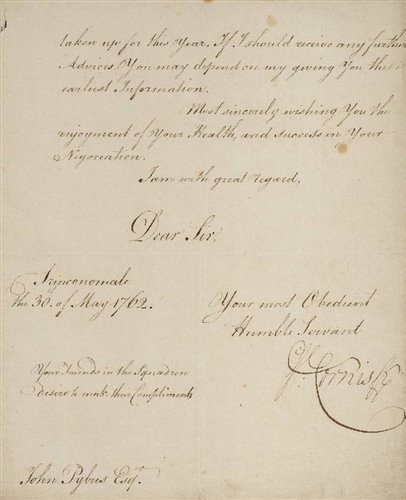 taken up for this Year. If I should receive any further
Advices, You may depend on my giving You the
earliest Information.
Most sincerely wishing You the
enjoyment of Your Health, and success in Your
Negociation.
I am with great regard,
Dear Sir,
Trinconomale
the 30. of May 1762.
Your most Obedient
Humble Servant
Cornish
Your Friends in the Squadron
desire to make their Compliments
John Pybus Esqr.